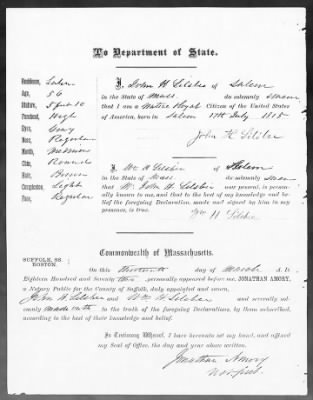 To Department of State.
Residence, Salem
Age, 56
Stature, 5 feet 10
Forehead, High
Eyes, Gray
Nose,
Mouth, Medium
Chin, Round
Hair, Brown
Complexion, Light
Face, Regular
I, John H Silsbee of Salem
in the State of Mass do solemnly swear
that I am a Native Loyal Citizen of the United States
of America, born in Salem 17th July 1815
John H. Silsbee
I, Wm H Silsbee of Salem
in the State of Mass do solemnly swear
that Mr. John H. Silsbee now present, is personally
known to me, and that to the best of my knowledge and belief
the foregoing Declaration, made and signed by him in my
presence, is true.
Wm H Silsbee
Commonwealth of Massachusetts.
SUFFOLK, SS.
BOSTON.
On this thirteenth day of March A. D.
Eighteen Hundred and Seventy personally appeared before me, JONATHAN AMORY,
a Notary Public for the County of Suffolk, duly appointed and sworn,
John H. Silsbee and Wm H Silsbee and severally solemnly
made oath to the truth of the foregoing Declarations, by them subscribed,
according to the best of their knowledge and belief.
In Testimony Whereof, I have hereunto set my hand, and affixed
my Seal of Office, the day and year above written.
Jonathan Amory
Not Pub.